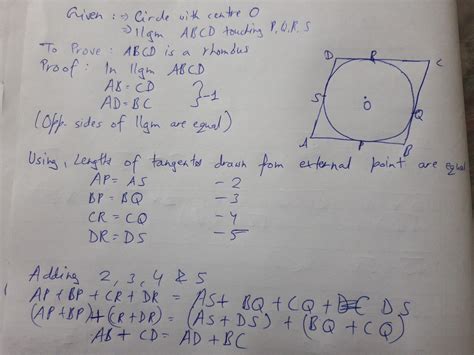 Given : ⇒ Circle with centre O
⇒ llgm ABCD touching P, Q, R, S
To Prove : ABCD is a rhombus
Proof : In llgm ABCD
AB = CD
AD = BC } -1
(Opp. sides of llgm are equal)
D R C
S O Q
A P B
Using, Lengths of tangents drawn from external point are equal
AP = AS - 2
BP = BQ - 3
CR = CQ - 4
DR = DS - 5
Adding 2, 3, 4 & 5
AP + BP + CR + DR = AS + BQ + CQ + DS
(AP + BP) + (R + DR) = (AS + DS) + (BQ + CQ)
AB + CD = AD + BC